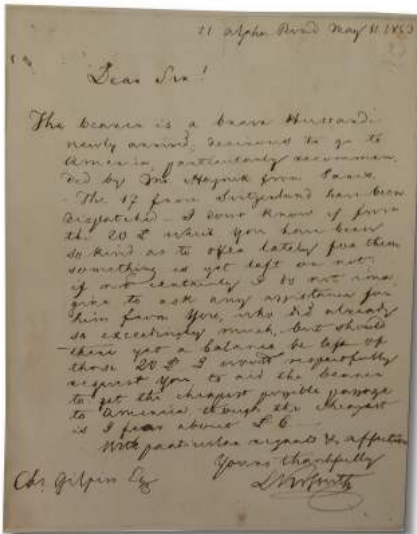 21 Alpha Road May 11 1853
Dear Sir!
The bearer is a brave Hussard
newly arrived, desirous to go to
America particularly recommen
ded by Mr. from
- The 17 from Switzerland have been
dispatched - I dont know if from
the 20 £ which you have been
so kind as to offer lately for them
something is yet left or not,
if not certainly I do not ima
gine to ask any assistance for
him from You, who did already
so exceedingly much, but should
there yet a balance be left of
those 20 £ I would respectfully
request You to aid the bearer
to get the cheapest possible passage
to America though the cheapest
is I fear about £ 6
With particular regards & affection
Yours thankfully
LKossuth
Chs. Gilpin Esq